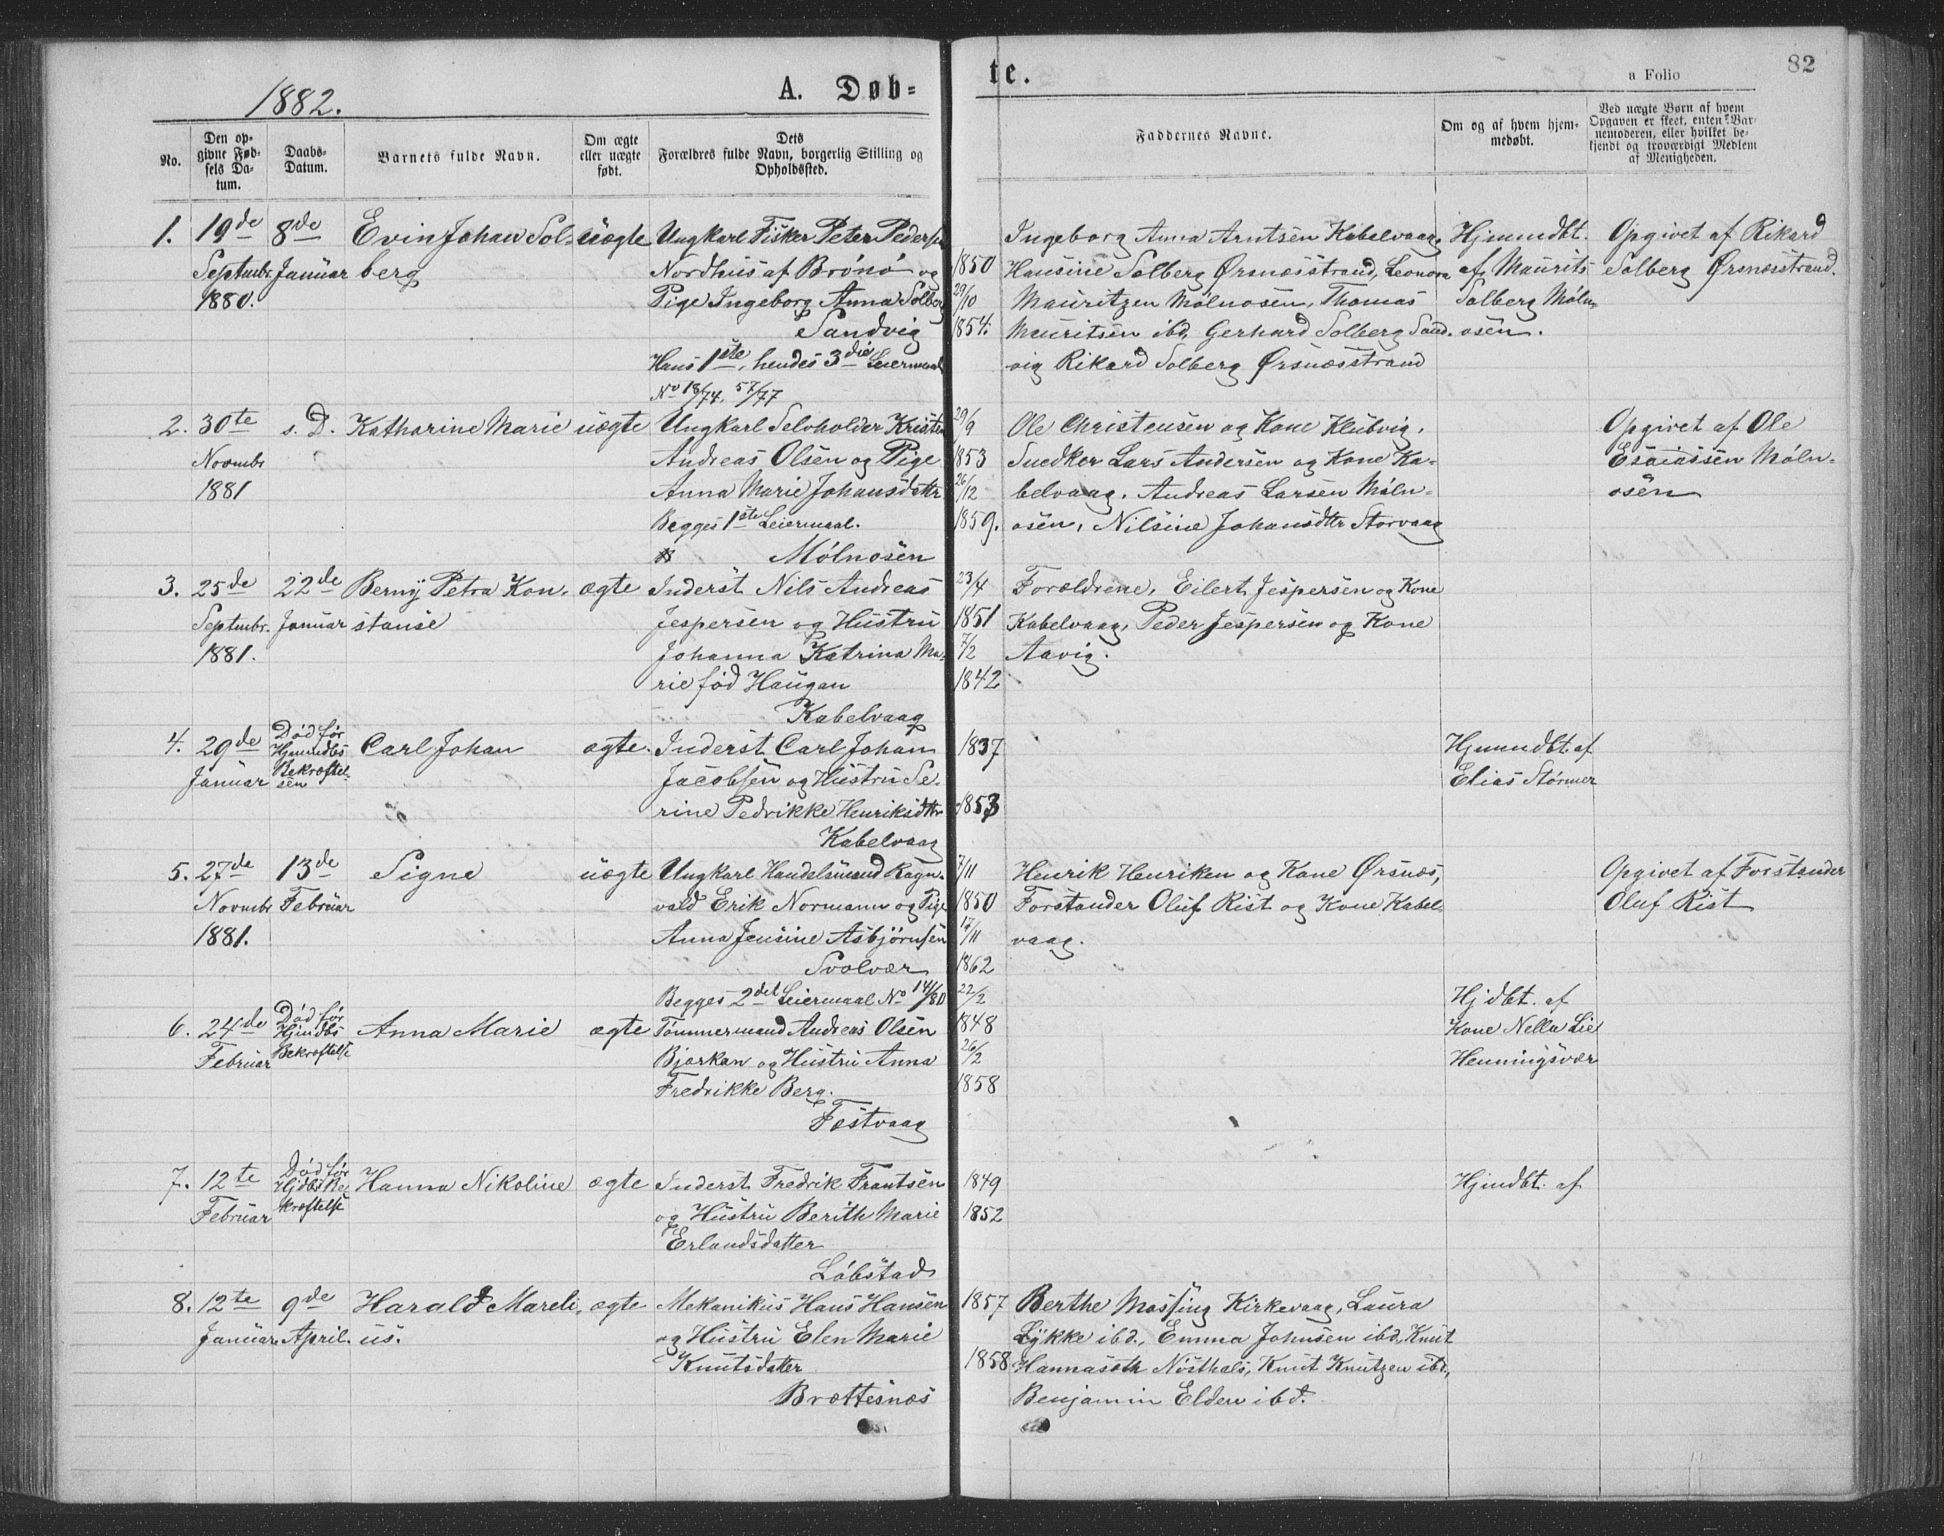 1882.
A. Døb=
te.
a Folio
82
No.
Den op-
givne Fød-
sels Da-
tum.
Daabs-
Datum.
Barnets fulde Navn.
Om ægte
eller uægte
født.
Dets
Forældres fulde Navn, borgerlig Stilling og
Opholdssted.
Faddernes Navne.
Om og af hvem hjem-
medøbt.
Ved uægte Børn af hvem
Opgaven er skeet, enten Bar-
nemoderen, eller hvilket be-
kjendt og troværdigt Medlem
af Menigheden.
1. 19de
Septmbr.
1880.
8de
Januar
Evin Johan Sol-
berg
uægte
Ungkarl Fisker Peter Pedersen
Nordhus af Brönö og
Pige Ingeborg Anna Solberg
Sandvig
Hans 1ste, hendes 3die Leiermaal
No 18/74, 57/77
1850
29/10
1854.
Ingeborg Anna Arntsen Kabelvaag,
Hansine Solberg Ørsnæsstrand, Leonora
Mauritzen Mölnosen, Thomas
Mauritsen ibd, Gerhard Solberg Sand-
vig Rikard Solberg Ørsnæsstrand
Hjmmdbt.
af Maurits
Solberg Möln-
osen.
Opgivet af Rikard
Solberg Ørsnæsstrand.
2. 30te
Novmbr
1881
s. D.
Katharine Marie
uægte
Ungkarl Selvholder Kristen
Andreas Olsen og Pige
Anna Marie Johansdattr
Begges 1ste Leiermaal.
Mölnosen
29/9
1853
26/12
1859.
Ole Christensen og Kone Klubvig,
Snedker Lars Andersen og Kone Ka-
belvaag, Andreas Larsen Möln-
osen, Nilsine Johansdttr Storvaag
Opgivet af Ole
Esaiassen Möln-
osen
3. 25de
Septmbr.
1881.
22de
Januar
Berny Petra Kon-
stanse
ægte
Inderst Nils Andreas
Jespersen og Hustru
Johanna Katrina Ma-
rie föd Haugan
Kabelvaag
23/4
1851
7/2
1842
Forældrene, Eilert Jespersen og Kone
Kabelvaag, Peder Jespersen og Kone
Aavig.
4. 29de
Januar
Död før
Hjmmdbs
Bekræftel-
sen
Carl Johan
ægte.
Inderst Carl Johan
Jacobsen og Hustru Se-
rine Pedrikke Henriksdttr
Kabelvaag
1837
1853
Hjmmdbt. af
Elias Störmer
5. 27de
Novmbr
1881.
13de
Februar
Signe
uægte
Ungkarl Handelsmand Ragn-
vald Erik Normann og Pige
Anna Jensine Asbjørnsen
Svolvær
Begges 2det Leiermaal No 141/80
7/11
1850
17/11
1862
Henrik Henriken og Kone Ørsnæs,
Forstander Oluf Rist og Kone Kabel-
vaag.
Opgivet af Forstander
Oluf Rist
6. 24de
Februar
Död før
Hjmdbs
Bekræftelse
Anna Marie
ægte
Tømmermand Andreas Olsen
Bjørkan og Hustru Anna
Fredrikke Berg.
Festvaag
22/2
1848
26/2
1858
Hjdbt. af
Kone Nella Lie
Henningsvær
7. 12te
Februar
Död før
Hjdbs Be-
kræftelse
Hanna Nikoline
ægte
Inderst Fredrik Frantsen
og Hustru Berith Marie
Erlandsdatter
Löbstad
1849
1852
Hjmdbt. af
8. 12te
Januar
9de
April.
Harald Mareli-
us.
ægte
Mekanikus Hans Hansen
og Hustru Elen Marie
Knutsdatter
Brættesnæs
1857
1858
Berthe Mossing Kirkevaag, Laura
Lykke ibd., Emma Johnsen ibd, Knut
Hannaseth Nösthals, Knut Knutzen ibd,
Benjamin Elden ibd.